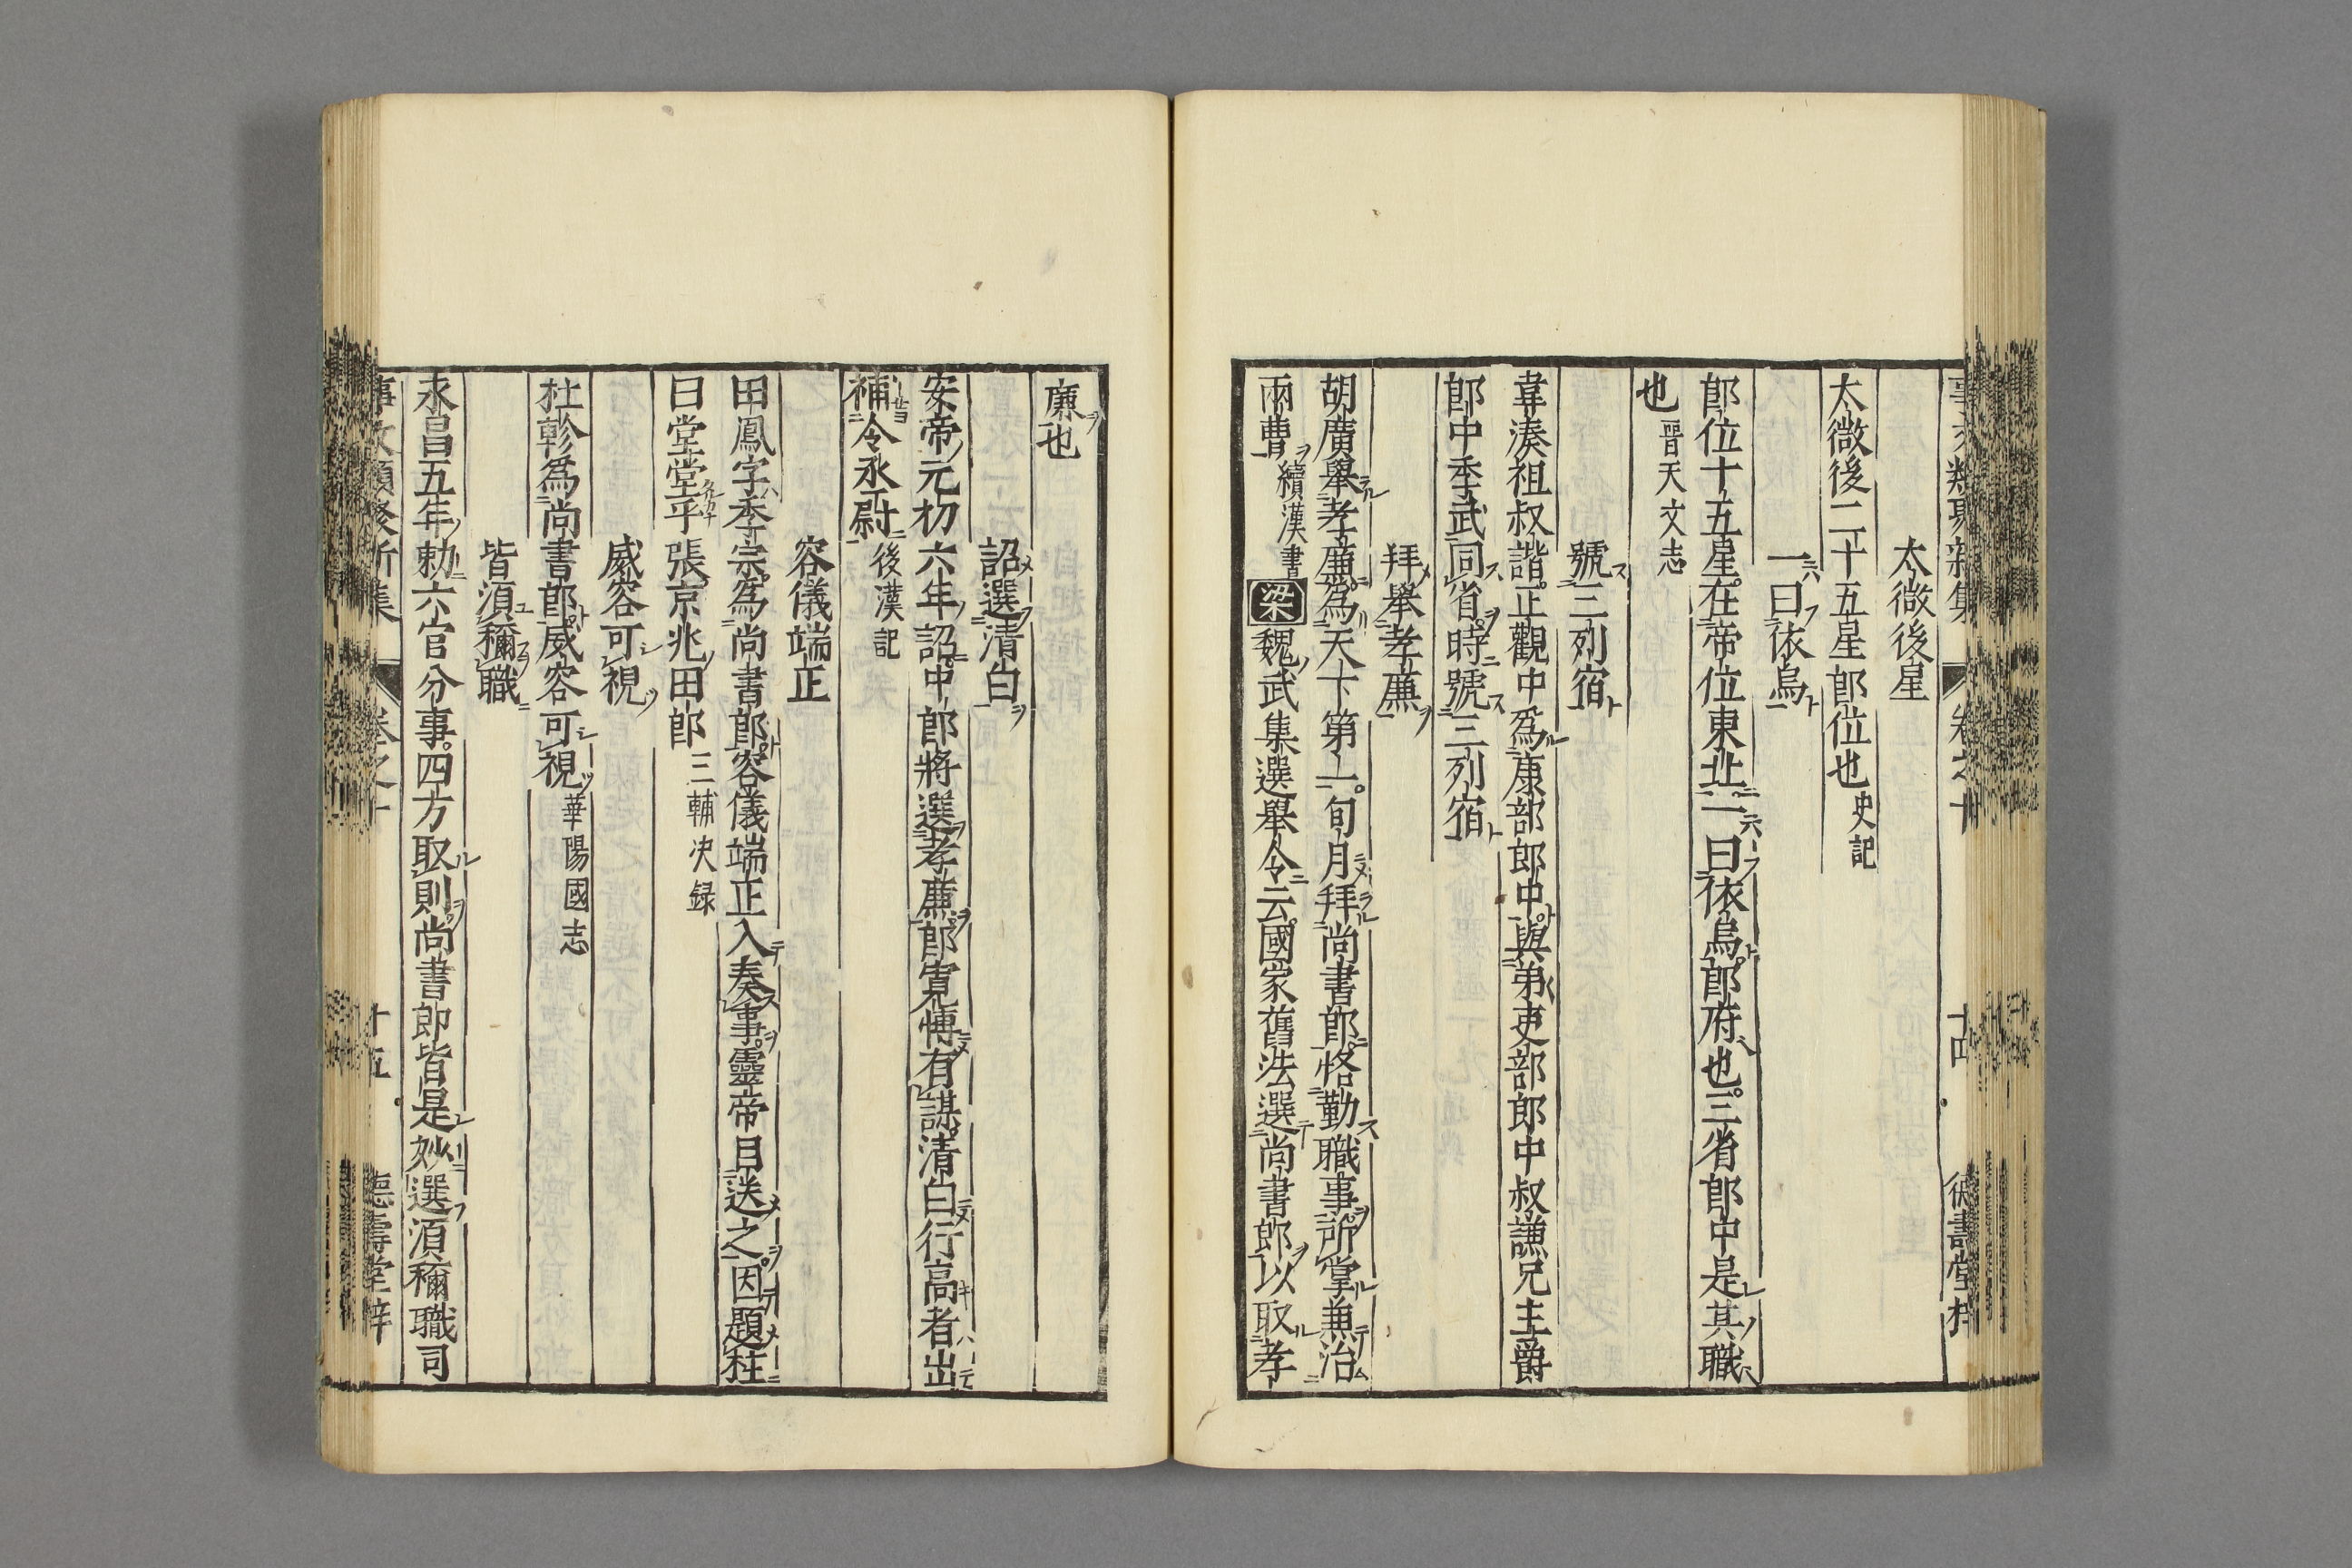 太微後星
太微後二十五星郎位也史記
一曰依烏
郎位十五星在帝位東北一曰依烏郎府也三省郎中是其職
也晉天文志
號三列宿
韋湊祖叔諧正觀中爲康部郎中與弟吏部郎中叔謙兄主爵
郎中季武同省時號三列宿
拜舉孝廉
胡廣舉孝廉爲天下第一旬月拜尚書郎恪勤職事所掌兼治
兩曹續漢書梁魏武集選舉令云國家舊法選尚書郎以取孝
廉也
詔選清白
安帝元初六年詔中郎將選孝廉郎寬博有謀清白行高者出
補令丞尉後漢記
容儀端正
田鳳字季宗爲尚書郎容儀端正入奏事靈帝目送之因題柱
曰堂堂乎張京兆田郎三輔決録
威容可視
杜軫爲尚書郎威容可視華陽國志
皆須稱職
永昌五年勅六官分事四方取則尚書郎皆是妙選須稱職司